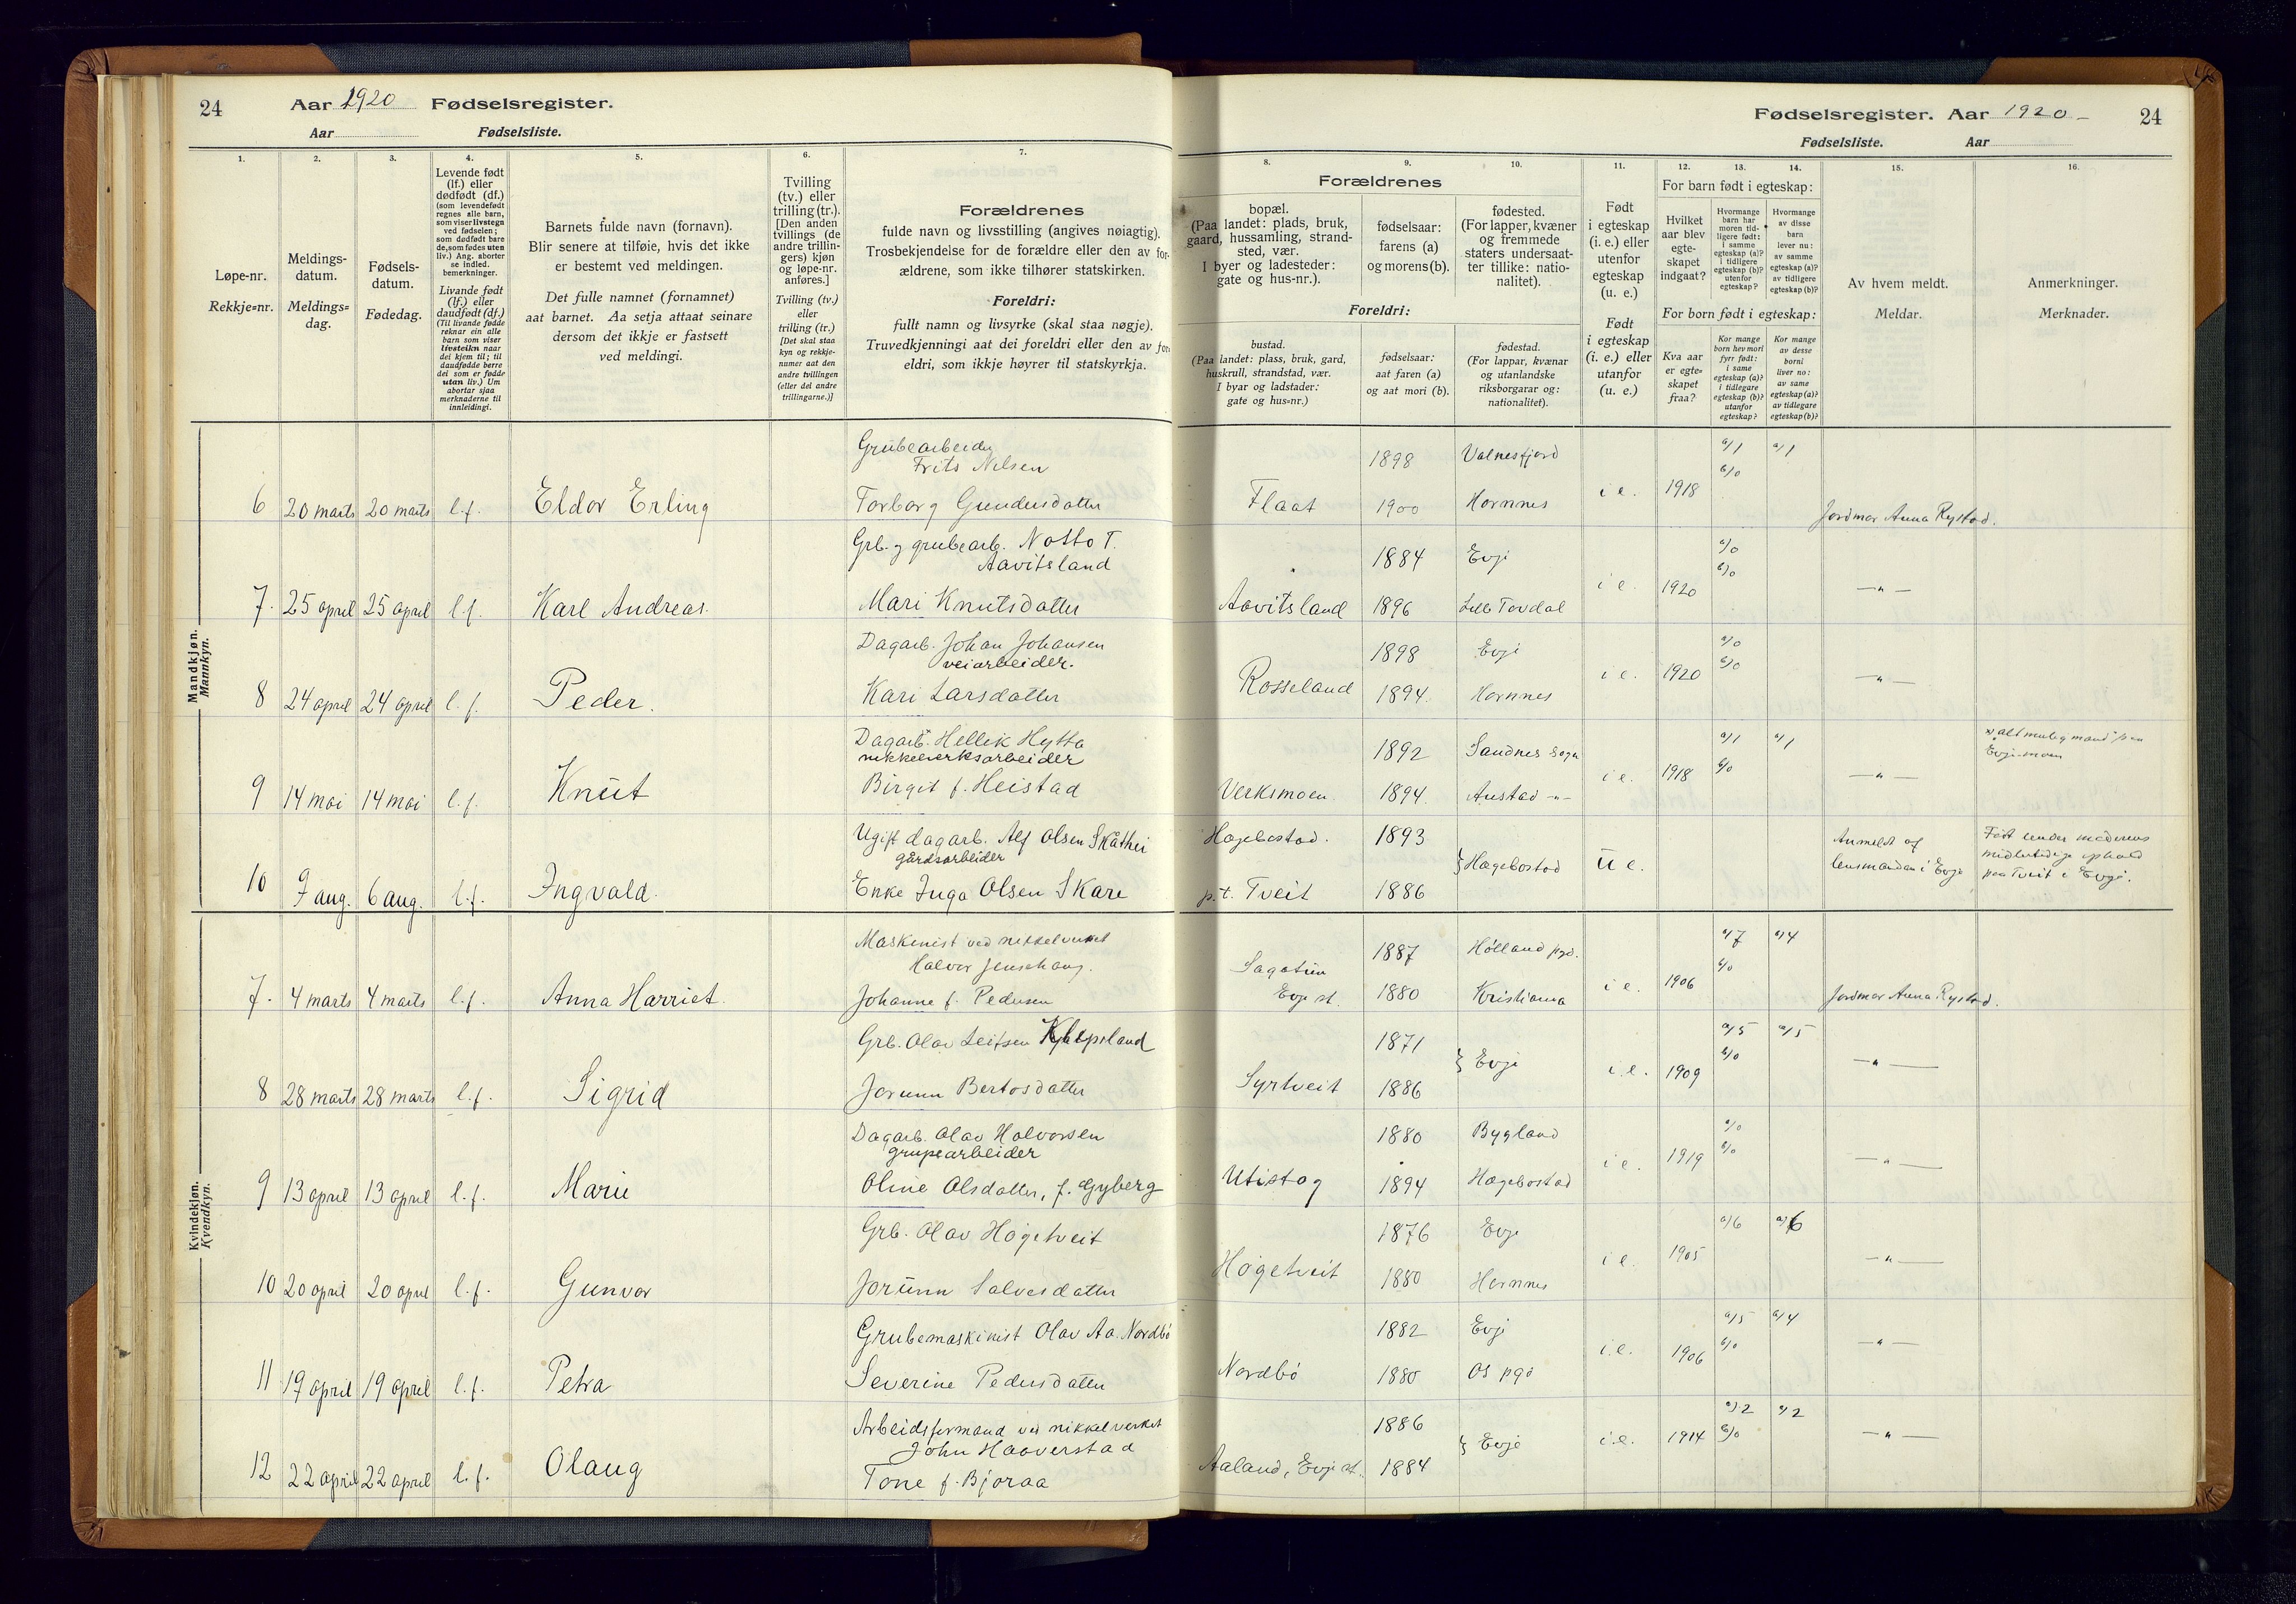 24
Aar 1920 Fødselsregister.
Aar Fødselsliste.
1.
2.
3.
4.
5.
6.
7.
Løpe-nr.
Rekkje=nr.
Meldings-
datum.
Meldings=
dag.
Fødsels-
datum.
Fødedag.
Levende født
(lf.) eller
dødfødt (df.)
(som levendefødt
regnes alle barn,
som viser livstegn
ved fødselen;
som dødfødt bare
de, som fødes uten
liv.) Ang. aborter
se indled.
bemerkninger.
Livande født
(lf.) eller
daudfødt (df.)
(Til livande fødde
reknar ein alle
barn som viser
livsteikn naar
dei kjem til; til
daudfødde berre
dei som er fødde
utan liv.) Um
abortar sjaa
merknaderne til
innleidingi.
Barnets fulde navn (fornavn).
Blir senere at tilføie, hvis det ikke
er bestemt ved meldingen.
Det fulle namnet (fornamnet)
aat barnet. Aa setja attaat seinare
dersom det ikkje er fastsett
ved meldingi.
Tvilling
(tv.) eller
trilling (tr.).
[Den anden
tvillings (de
andre trillin-
gers) kjøn
og løpe-nr.
anføres.]
Tvilling (tv.)
eller
trilling (tr.)
[Det skal staa
kyn og rekkje-
numer aat den
andre tvillingen
(eller dei andre
trillingarne.)]
Forældrenes
fulde navn og livsstilling (angives nøiagtig).
Trosbekjendelse for de forældre eller den av for-
ældrene, som ikke tilhører statskirken.
Foreldri:
fullt namn og livsyrke (skal staa nøgje).
Truvedkjenningi aat dei foreldri eller den av for-
eldri, som ikkje høyrer til statskyrkja.
Mandkjøn.
Mannkyn.
Grubearbeider
Frits Nilsen
6 20 marts 20 marts l.f. Eldor Erling Torborg Gundersdatter
Grb. og grubearb. Notto T.
Aavitsland
7. 25 april 25 april l.f. Karl Andreas. Mari Knutsdatter
Dagarb. Johan Johansen
veiarbeider.
8 24 april 24 april l.f. Peder. Kari Larsdatter
Dagarb. Hellik Hytta
nikkelverksarbeider
9 14 mai 14 mai l.f. Knut Birgit f. Heistad
Ugift dagarb. Alf Olsen Skåthei
gårdsarbeider
10 9 aug. 6 aug. l.f. Ingvald. Enke Inga Olsen Skare
Kvindekjøn.
Kvendkyn.
Maskinist ved nikkelverket
Halvor Jenshaug.
7. 4 marts 4 marts l.f. Anna Harriet Johanne f. Pedersen
Grb. Olav Leifsen
8 28 marts 28 marts l.f. Sigrid Jorunn Bertosdatter
Dagarb. Olav Halvorsen
grupearbeider
9 13 april 13 april l.f. Marie Oline Olsdatter, f. Gyberg
Grb. Olav Høgetveit
10 20 april 20 april l.f. Gunvor Jorunn Salvesdatter
Grubemaskinist Olav Aa. Nordbø
11 19 april 19 april l.f. Petra Severine Pedersdatter
Arbeidsformand ved nikkelverket
John Haaverstad
12 22 april 22 april l.f. Olaug Tone f. Bjoraa
Fødselsregister. Aar 1920 - 24
Fødselsliste. Aar
8.
9.
10.
11.
12.
13.
14.
15.
16.
Forældrenes
bopæl.
(Paa landet: plads, bruk,
gaard, hussamling, strand-
sted, vær.
I byer og ladesteder:
gate og hus-nr.).
fødselsaar:
farens (a)
og morens (b).
fødested.
(For lapper, kvæner
og fremmede
staters undersaat-
ter tillike: natio-
nalitet).
Foreldri:
bustad.
(Paa landet: plass, bruk, gard,
huskrull, strandstad, vær.
I byar og ladstader:
gate og hus=nr.)
fødselsaar:
aat faren (a)
og aat mori (b).
fødestad.
(For lappar, kvænar
og utanlandske
riksborgarar og:
nationalitet).
Født
i egteskap
(i. e.) eller
utenfor
egteskap
(u. e.)
Født
i egteskap
(i. e.) eller
utanfor
(u. e.)
For barn født i egteskap:
Hvilket
aar blev
egte-
skapet
indgaat?
Hvormange
barn har
moren tid-
ligere født:
i samme
egteskap (a)?
i tidligere
egteskap (b)?
utenfor
egteskap?
Hvormange
av disse
barn
lever nu:
av samme
egteskap (a)?
av tidligere
egteskap (b)?
For born født i egteskap:
Kva aar
er egte-
skapet
fraa?
Kor mange
born hev mori
fyrr født:
i same
egteskap (a)?
i tidlegare
egteskap (b)?
utanfor
egteskap?
Kor mange
av desse
borni
liver no:
av same
egteskap (a)?
av tidlegare
egteskap (b)?
Av hvem meldt.
Meldar.
Anmerkninger.
Merknader.
1898 Valnesfjord a/1 a/1
b/0
Flaat 1900 Hornnes i e. 1918 Jordmor Anna Rystad.
1884 Evje a/0
b/0
Aavitsland 1896 Tovdal i e. 1920 —"—
1898 Evje a/0
b/0
Rosseland 1894. Hornnes i e. 1920 —"—
1892 Sandnes sogn a/1 a/1
b/0
Verksmoen. 1894. Austad —"— i e. 1918 —"—
Hægebostad. 1893
} Hægebostad u e. Anmeldt af
lensmanden i Evje
Født under moderens
midlertidige ophold
paa Tveit i Evje.
p.t. Tveit 1886
1887 Høland pgd. a/7 a/4
b/0
Sagatun
Evje st. 1880 Kristiania i e. 1906 Jordmor Anna Rystad.
1871 a/5 a/5
} Evje b/0
Syrtveit 1886 i.e. 1909 —"—
1880 Bygland a/0
b/0
Utistog 1894 Hægebostad i e. 1919 —"—
1876 Evje a/6 a/6
Høgetveit 1880 Hornnes i e. 1905 —"—
1882 Evje a/5 a/4
b/0
Nordbø 1880 Os pgd i.e. 1906 —"—
1886 a/2 a/2
} Evje b/0
Aaland, Evje st. 1884 i.e. 1914 —"—